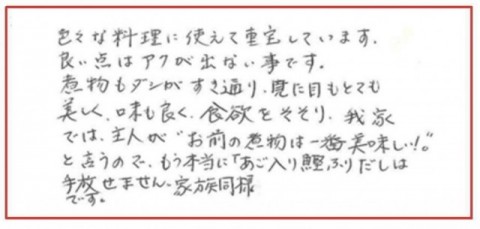 色々な料理に使えて重宝しています。
良い点はアクが出ない事です。
煮物もダシがすき通り、見た目もとても
美しく、味も良く、食欲をそそり、我家
では、主人が“お前の煮物は一番美味しい!”
と言うので、もう本当に「あご入り鰹ふりだしは
手放せません。家族同様
です。